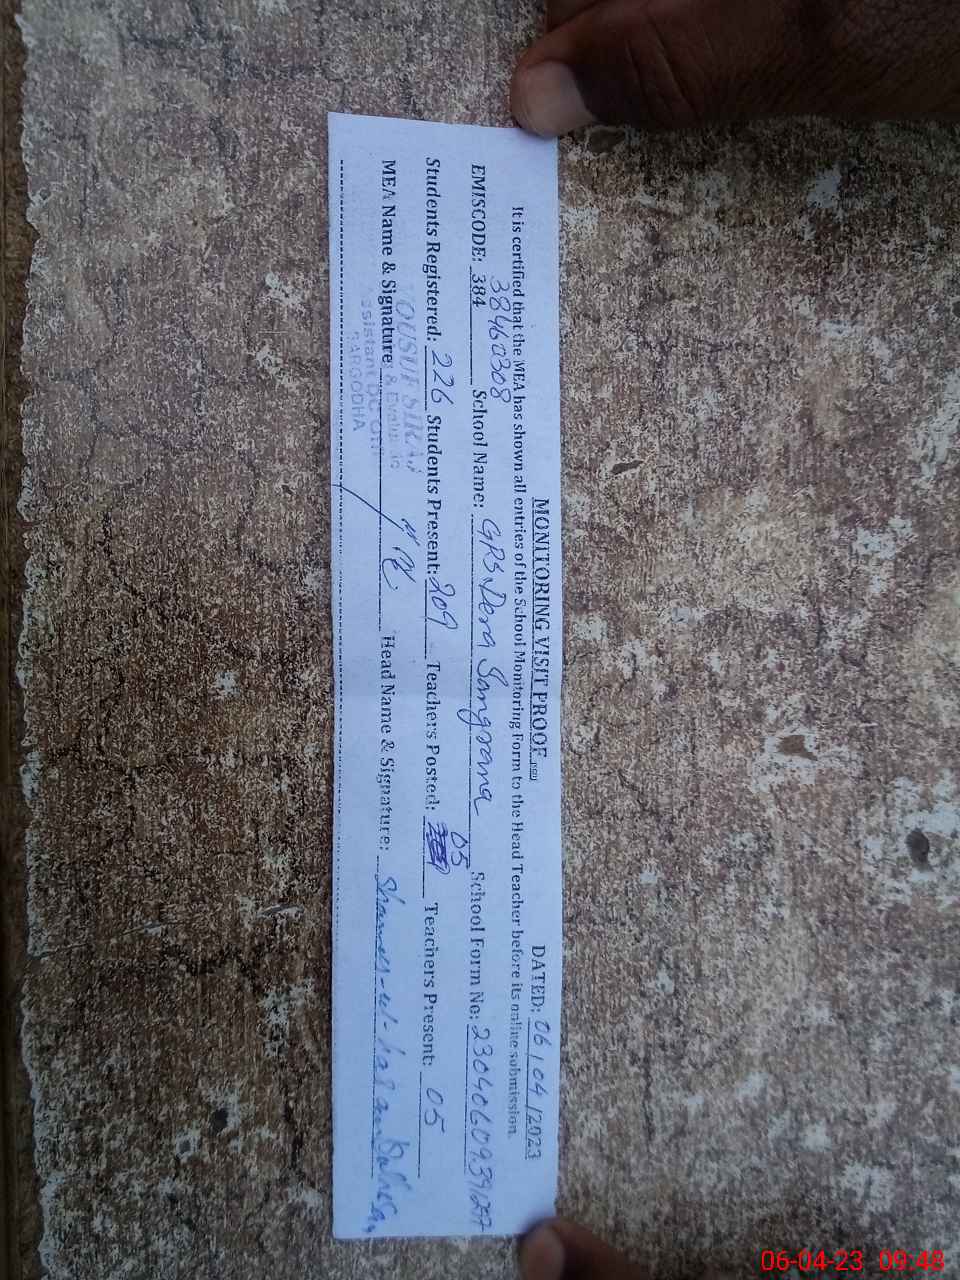 MONITORING VISIT PROOF DATED: 06/04/2023
It is certified that the MEA has shown all entries of the School Monitoring Form to the Head Teacher before its online submission.
38460308
EMISCODE: 384 School Name: GPS Dera Sangrana School Form No:
05
Students Registered: 226 Students Present: 209 Teachers Posted: Teachers Present: 05
MEA Name & Signature Head Name & Signature: Shams-ul-hasan
SARGODHA
06-04-23 09:48